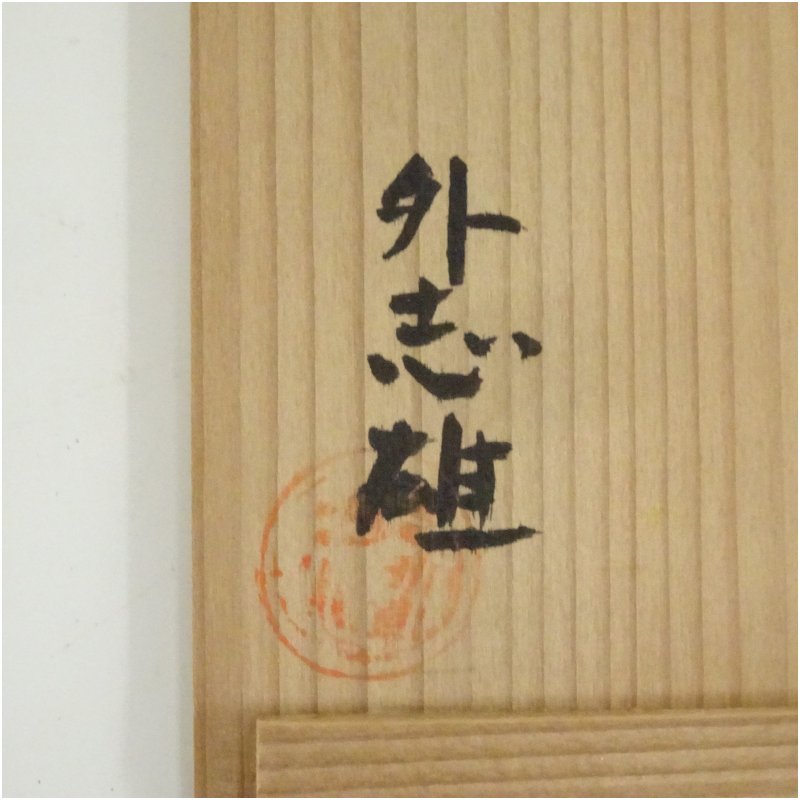 外志雄